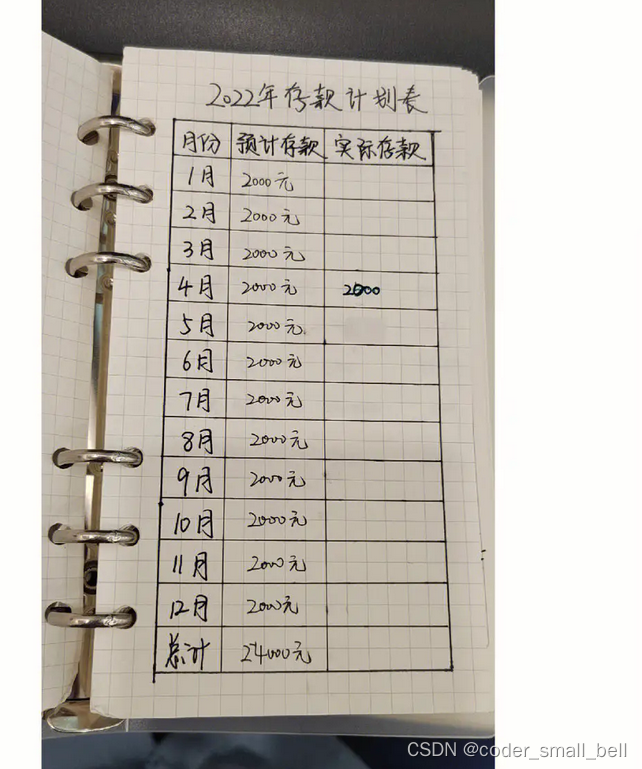 2022年存款计划表
月份 预计存款 实际存款
1月 2000元
2月 2000元
3月 2000元
4月 2000元 2500
5月 2000元
6月 2000元
7月 2000元
8月 2000元
9月 2000元
10月 2000元
11月 2000元
12月 2000元
总计 24000元
CSDN @coder_small_bell